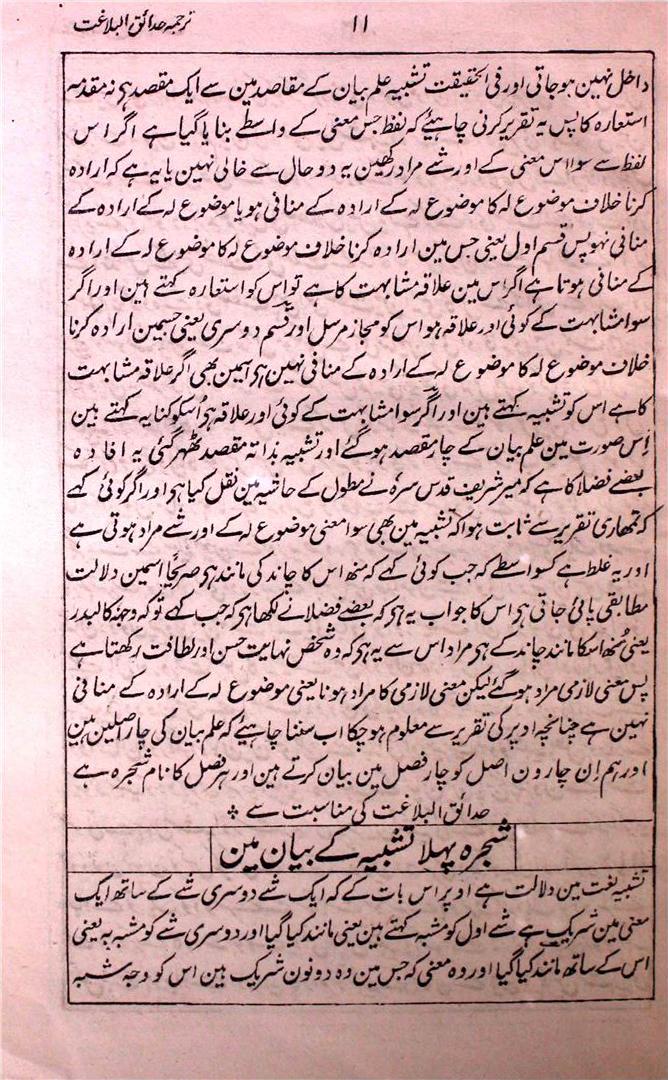 ۱۱
ترجمہ حدائق البلاغت
داخل نہین ہوجاتی اور فی الحقیقت تشبیہ علم بیان کے مقاصد مین سے ایک مقصد ہی نہ مقدمہ
استعارہ کا پس یہ تقریر کرنی چاہیئے کہ لفظ جس معنی کے واسطے بنایا گیا ہے اگر اس
لفظ سے سوا اس معنی کے اور شے مراد رکھین یہ دو حال سے خالی نہین یا یہ ہے کہ ارادہ
کرنا خلاف موضوع لہ کا موضوع لہ کے ارادہ کے منافی ہو یا موضوع لہ کے ارادہ کے
منافی نہو پس قسم اول یعنی جس مین ارادہ کرنا خلاف موضوع لہ کا موضوع لہ کے ارادہ
کے منافی ہوتا ہے اگر اس مین علاقہ مشابہت کا ہے تو اس کو استعارہ کہتے ہین اور اگر
سوا مشابہت کے کوئی اور علاقہ ہو اس کو مجاز مرسل اور قسم دوسری یعنی جسمین ارادہ کرنا
خلاف موضوع لہ کا موضوع لہ کے ارادہ کے منافی نہین ہی اسمین بھی اگر علاقہ مشابہت
کا ہے اس کو تشبیہ کہتے ہین اور اگر سوا مشابہت کے کوئی اور علاقہ ہی اُسکو کنایہ کہتے ہین
اِس صورت مین علم بیان کے چار مقصد ہوگئے اور تشبیہ بذاتہ مقصد ٹھہر گئی یہ افادہ
بعضے فضلا کا ہے کہ میر شریف قدس سرہ نے مطول کے حاشیہ مین نقل کیا ہی اور اگر کوئی کہے
کہ تمھاری تقریر سے ثابت ہوا کہ تشبیہ مین بھی سوا معنی موضوع لہ کے اور شے مراد ہوتی ہے
اور یہ غلط ہے کسواسطے کہ جب کوئی کہے کہ منھ اس کا چاند کی مانند ہی صریحًا اسمین دلالت
مطابقی پائی جاتی ہی اس کا جواب یہ ہی کہ بعضے فضلا نے لکھا ہی کہ جب کہے تو کہ وجہہ کالبدر
یعنی مُنھ اسکا مانند چاند کے ہی مراد اس سے یہ ہی کہ وہ شخص نہایت حسن اور لطافت رکھتا ہے
پس معنی لازمی مراد ہو گئے لیکن معنی لازمی کا مراد ہونا یعنی موضوع لہ کے ارادہ کے منافی
نہین ہے چنانچہ اوپر کی تقریر سے معلوم ہو چکا اب سننا چاہیئے کہ علم بیان کی چار اصلین ہین
اور ہم اِن چارون اصل کو چار فصل مین بیان کرتے ہین اور ہر فصل کا نام شجرہ ہے
حدائق البلاغت کی مناسبت سے
شجرہ پہلا تشبیہ کے بیان مین
تشبیہ لغت مین دلالت ہے اوپر اس بات کے کہ ایک شے دوسری شے کے ساتھ ایک
معنی مین شریک ہے شے اول کو مشبہ کہتے ہین یعنی مانند کیا گیا اور دوسری شے کو مشبہ بہ یعنی
اس کے ساتھ مانند کیا گیا اور وہ معنی کہ جس مین وہ دونون شریک ہین اس کو وجہ شبہ